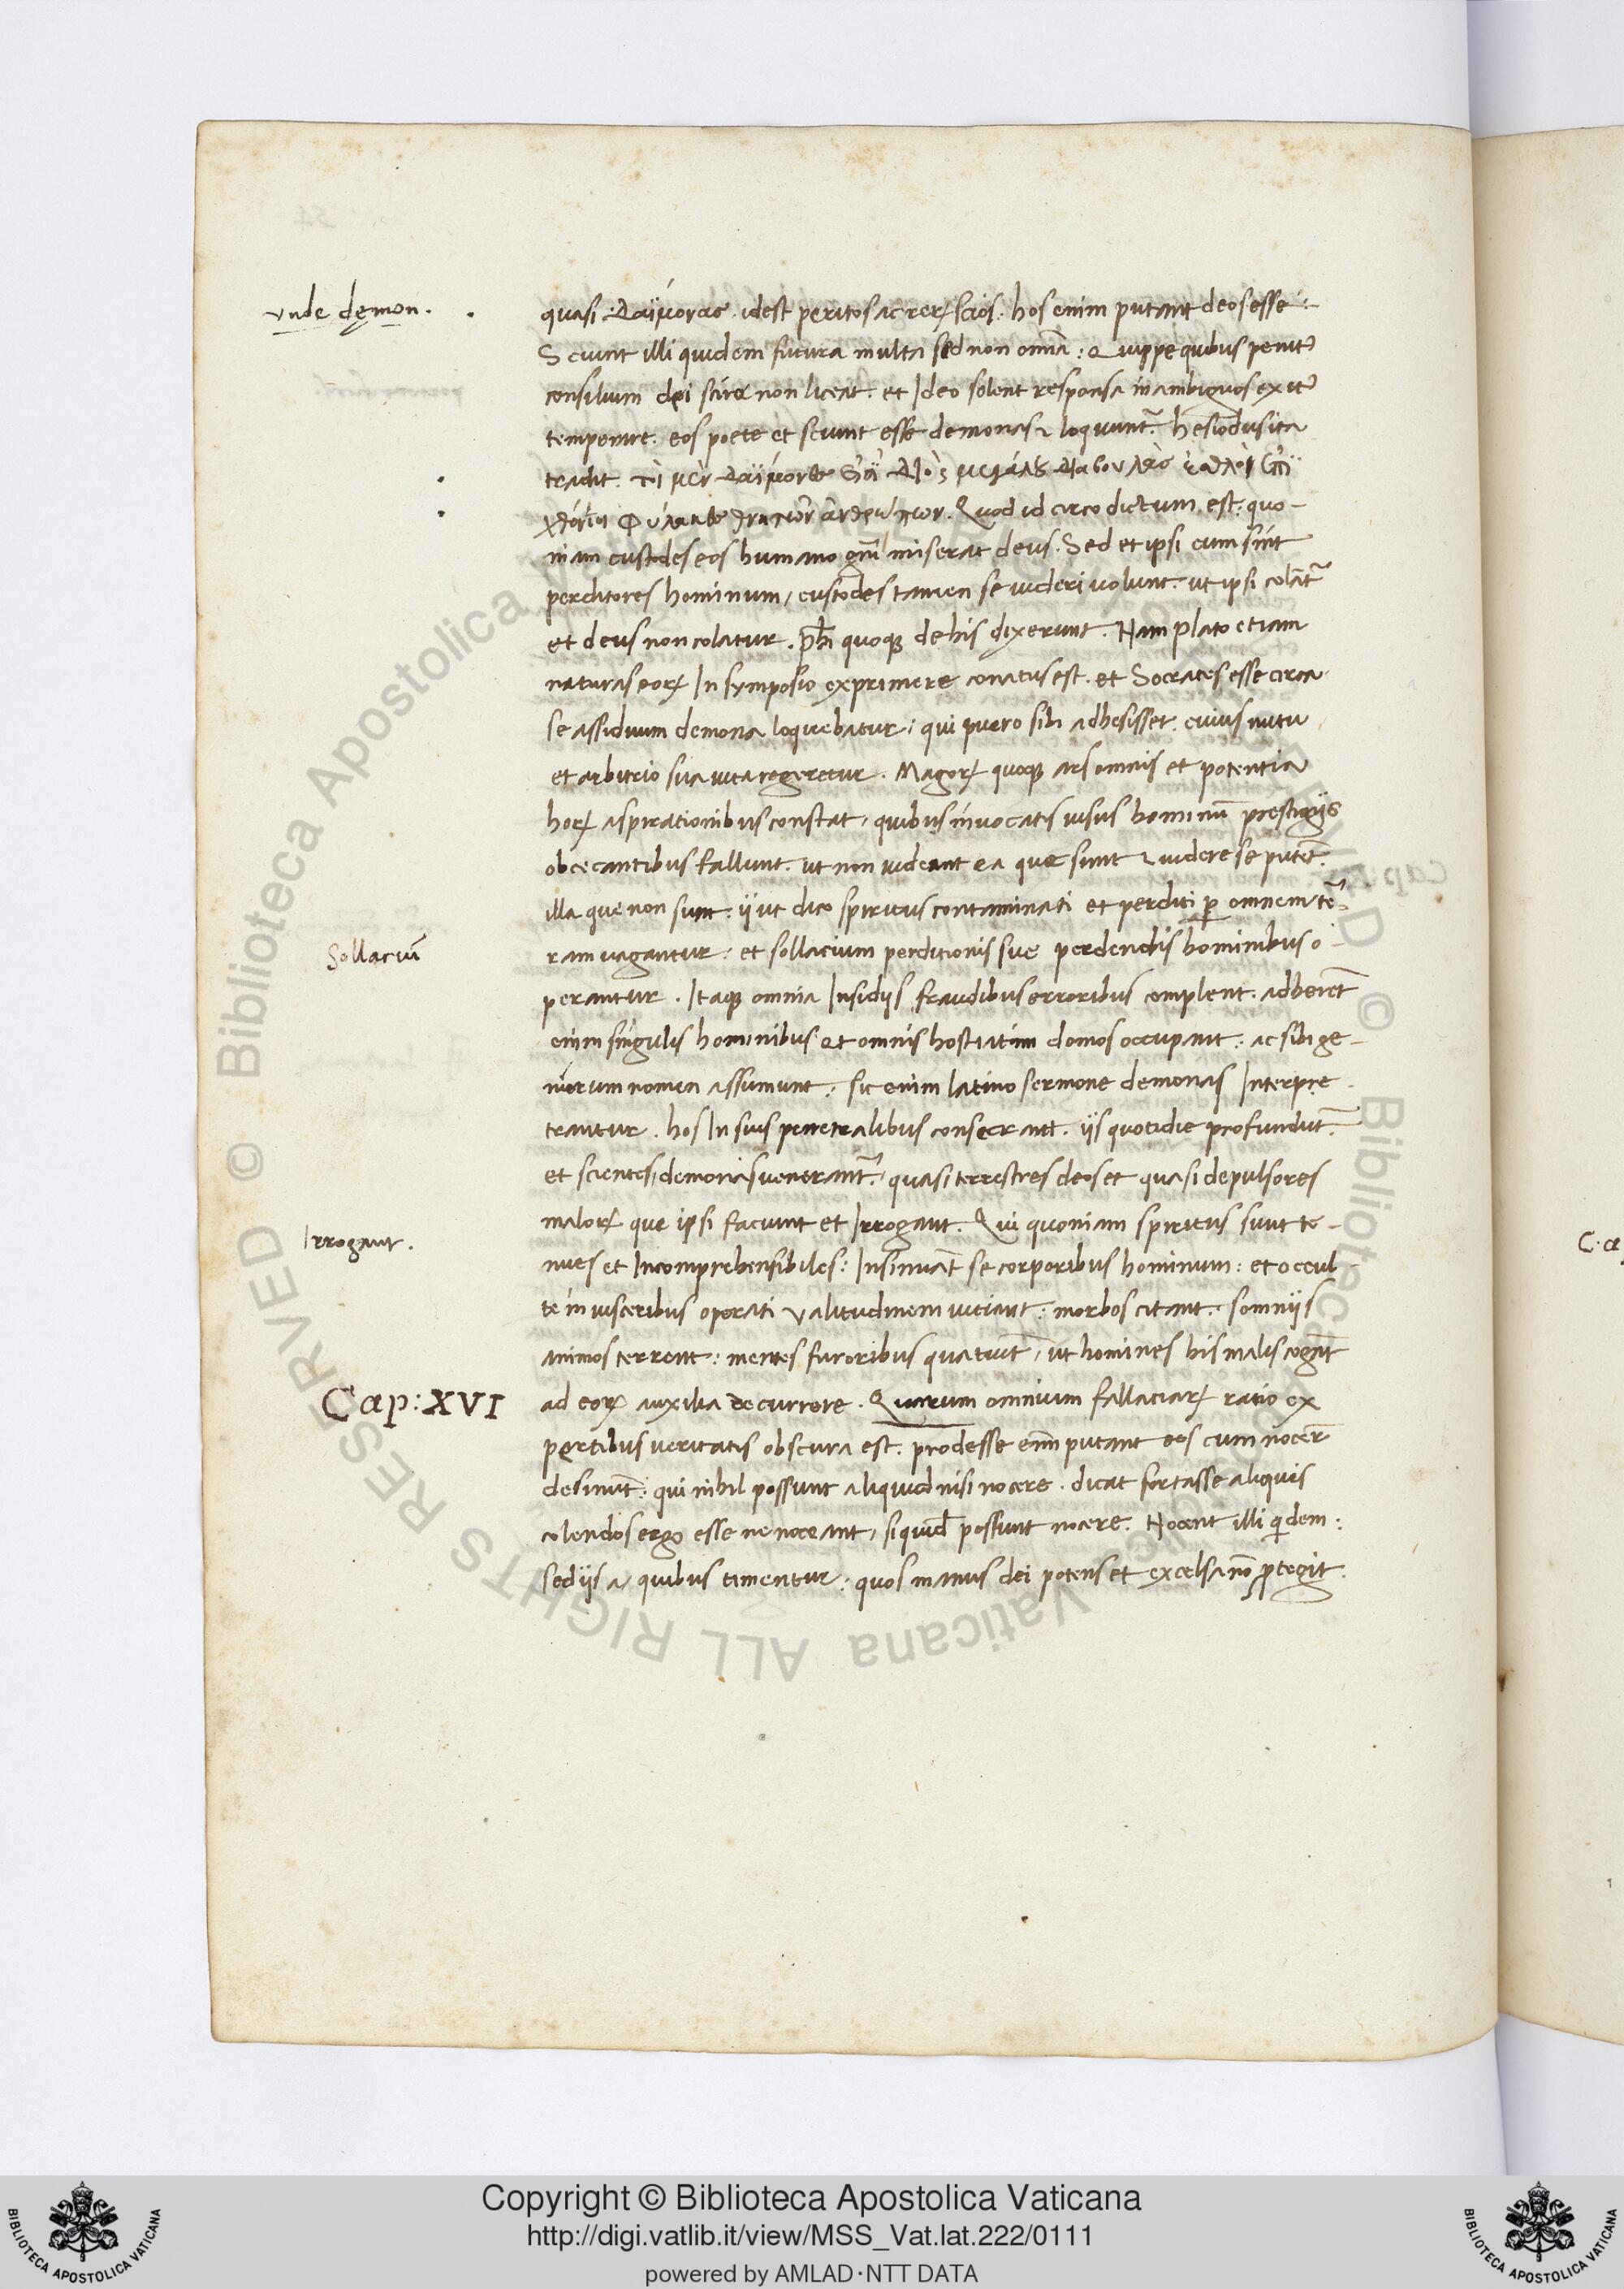 vnde dęmon.
quasi δαΐμονας. idest peritos ac rerꝝ scios: hos enim putant deos esse:
Sciunt illi quidem futura multa sed non omnia: Quippe quibus penitꝰ
consilium dei scire non liceat. et Ideo solent responsa in ambiguos exitꝰ
temperare. eos poete et sciunt esse demonas & loquunt᷑. hesiodus ita
tradit. τὶ μὲν δαΐμονες
φύλακες θνατῶν ἀνθρώπων. Quod id circo dictum est: quo-
niam custodes eos humano gn̄i miserat deus. Sed et ipsi cum sint
perditores hominum, custodes tamen se uideri uolunt. ut ipsi colāt᷑
et deus non colatur. phi̅ quoqꝫ de his dixerunt. Nam plato etiam
naturas eorꝝ In symposio exprimere conatus est. et Socrates esse circa
se assiduum demona loquebatur, qui puero sibi adhesisset. cuius nutu
et arbitrio sua uita regeretur. Magorꝝ quoqꝫ ars omnis et potentia
horꝝ aspirationibus constat, quibus inuocatis uisus hominū prestigijs
obcecantibus fallunt. ut non uideant ea que sunt & uidere se putēt.
illa que non sunt. ij ut dico spiritus contaminati et perditi ꝑ omnem te᷑-
Sollaciū
ram uagantur: et sollacium perditionis sue perdendis hominibus o-
perantur. Itaqꝫ omnia Insidijs fraudibus erroribus complent. adherēt
enim singulis hominibus et omnis hostiatim domos occupant: ac sibi ge-
niorum nomen assumunt: sic enim latino sermone demonas Interpre-
tantur. hos In suis penetralibus consecrant. ijs quotidie profundūt.
et scientes demonas uenerant᷑. quasi terrestres deos et quasi depulsores
Irrogant.
malorꝝ que ipsi faciunt et Irrogant. Qui quoniam spiritus sunt te-
nues et Incomprehensibiles: Insinuāt se corporibus hominum: et occul-
te in uisceribus operati valitudinem uitiant: morbos citant. somnijs
animos terrent: mentes furoribus quatiūt, ut homines his malis cogāt
Cap: XVI
ad eorꝝ auxilia decurrere. Quarum omnium fallaciarꝝ ratio ex
pertibus ueritatis obscura est. prodesse enim putant eos cum nocer̄
desinūt: qui nihil possunt aliquid nisi nocere. dicat fortasse aliquis
colendos ergo esse ne noceant, siquid̄ possunt nocere. Nocent illi qͥdem:
sed ijs a quibus timentur: quos manus dei potens et excelsa nō ꝓtegit.
C. a
Copyright © Biblioteca Apostolica Vaticana
http://digi.vatlib.it/view/MSS_Vat.lat.222/0111
powered by AMLAD·NTT DATA
BIBLIOTECA APOSTOLICA VATICANA
BIBLIOTECA APOSTOLICA VATICANA